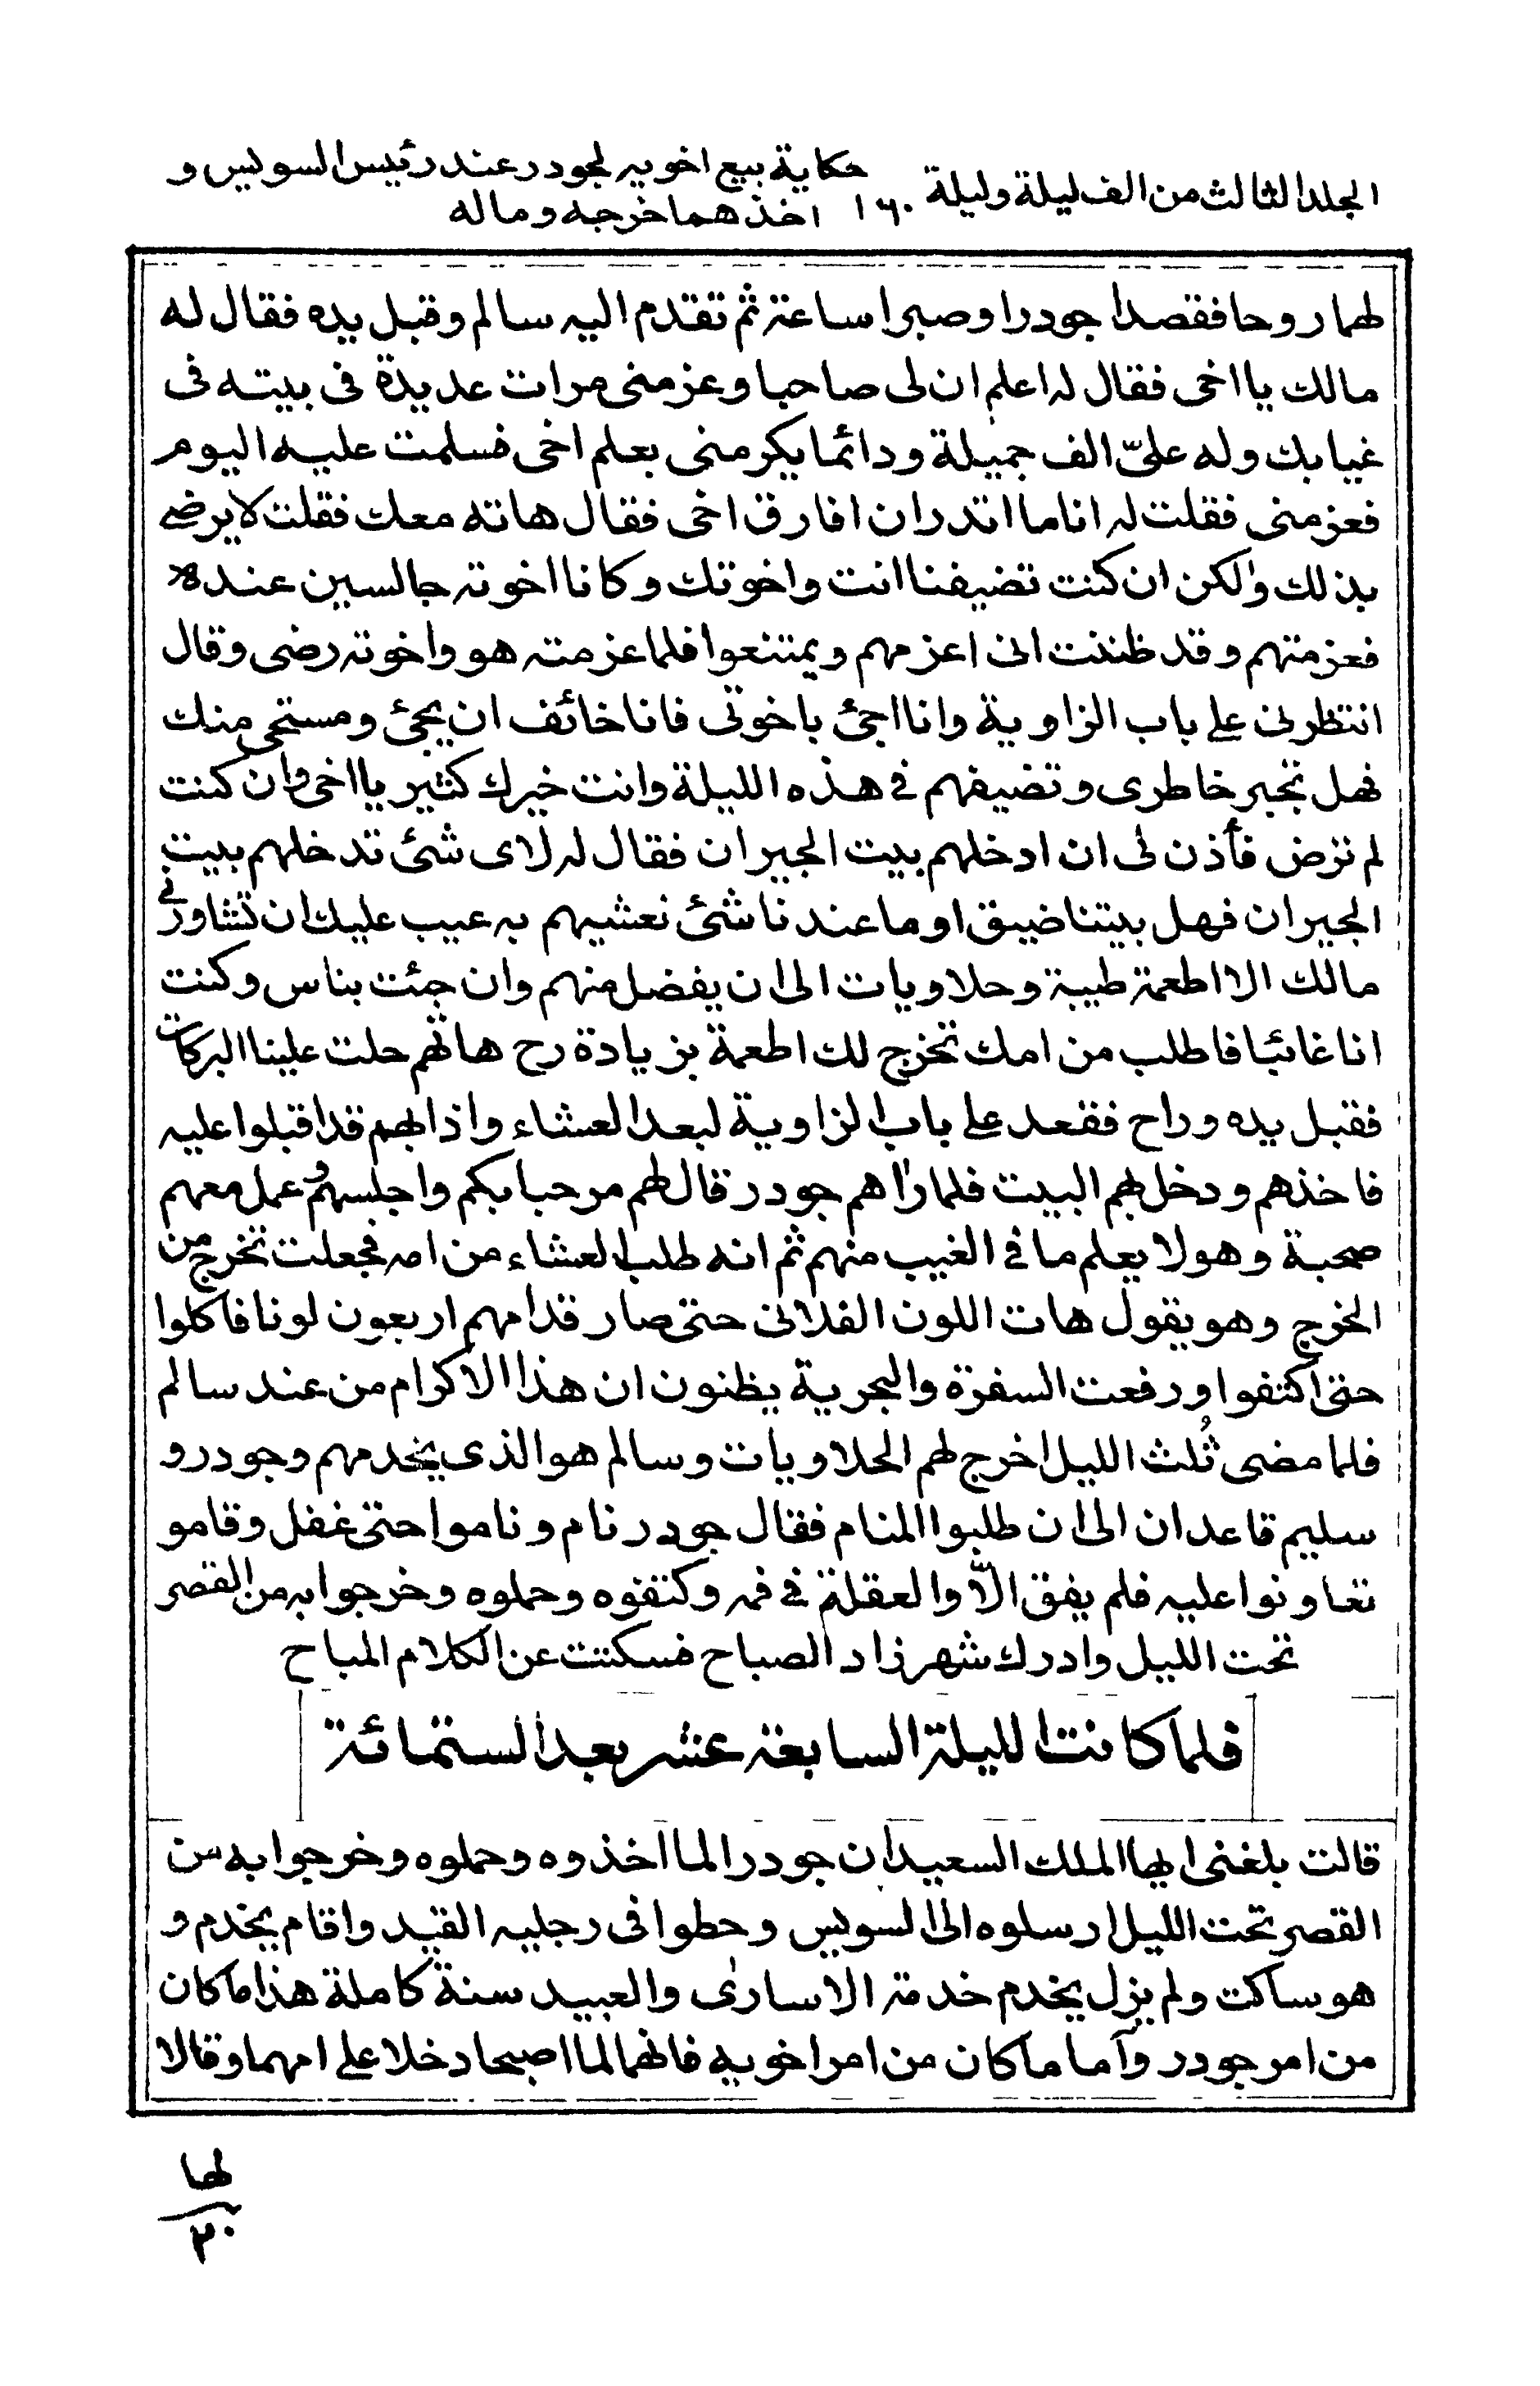 الجلد الثالث من الف ليلة وليلة ١٦٠ حكاية بيع اخويه لجودر عند رئيس السويس و
اخذهما خرجه وماله
لهما روحا فقصدا جودرا وصبرا ساعة ثم تقدم اليه سالم وقبل يده فقال له
مالك يا اخى فقال له اعلم ان لى صاحبا وعزمنى مرات عديدة فى بيته فى
غيابك وله علىّ الف جميلة ودائما يكرمنى بعلم اخى فسلمت عليه اليوم
فعزمنى فقلت له انا ما اقدر ان افارق اخى فقال هاته معك فقلت لا يرضى
بذلك ولكن ان كنت تضيفنا انت واخوتك وكانا اخوته جالسين عنده
فعزمتهم وقد ظننت انى اعزمهم ويمتنعوا فلما عزمته هو واخوته رضى وقال
انتظرنى على باب الزاوية وانا اجئ باخوتى فانا خائف ان يجئ ومستحى منك
فهل تجبر خاطرى وتضيفهم فى هذه الليلة وانت خيرك كثير يا اخى وان كنت
لم ترض فأذن لى ان ادخلهم بيت الجيران فقال له لاى شئ تدخلهم بيت
الجيران فهل بيتنا ضيق او ما عندنا شئ نعشيهم به عيب عليك ان تشاورنى
مالك الا اطعمة طيبة وحلاويات الى ان يفضل منهم وان جئت بناس وكنت
انا غائبا فاطلب من امك تخرج لك اطعمة بزيادة رح هاتهم حلت علينا البركات
فقبل يده وراح فقعد على باب الزاوية لبعد العشاء واذا بهم قد اقبلوا عليه
فاخذهم ودخل بهم البيت فلما رأهم جودر قال لهم مرحبا بكم واجلسهم وعمل معهم
صحبة وهو لا يعلم ما فى الغيب منهم ثم انه طلب العشاء من امه فجعلت تخرج من
الخرج وهو يقول هات اللون الفلانى حتى صار قدامهم اربعون لونا فاكلوا
حتى اكتفوا ورفعت السفرة والبحرية يظنون ان هذا الاكرام من عند سالم
فلما مضى ثُلث الليل اخرج لهم الحلاويات وسالم هو الذى يخدمهم وجودر و
سليم قاعدان الى ان طلبوا المنام فقال جودر نام وناموا حتى غفل وقامو
تعاونوا عليه فلم يفق الّا والعقلة فى فمه وكتفوه وحملوه وخرجوا به من القصر
تحت الليل وادرك شهرزاد الصباح فسكتت عن الكلام المباح
فلما كانت الليلة السابعة عشر بعد الستمائة
قالت بلغنى ايها الملك السعيد ان جودرا لما اخذوه وحملوه وخرجوا به من
القصر تحت الليل ارسلوه الى السويس وحطوا فى رجليه القيد واقام يخدم و
هو ساكت ولم يزل يخدم خدمة الاسارى والعبيد سنة كاملة هذا ما كان
من امر جودر وآما ما كان من امر اخويه فانهما لما اصبحا دخلا على امهما وقالا
لها
٢٠